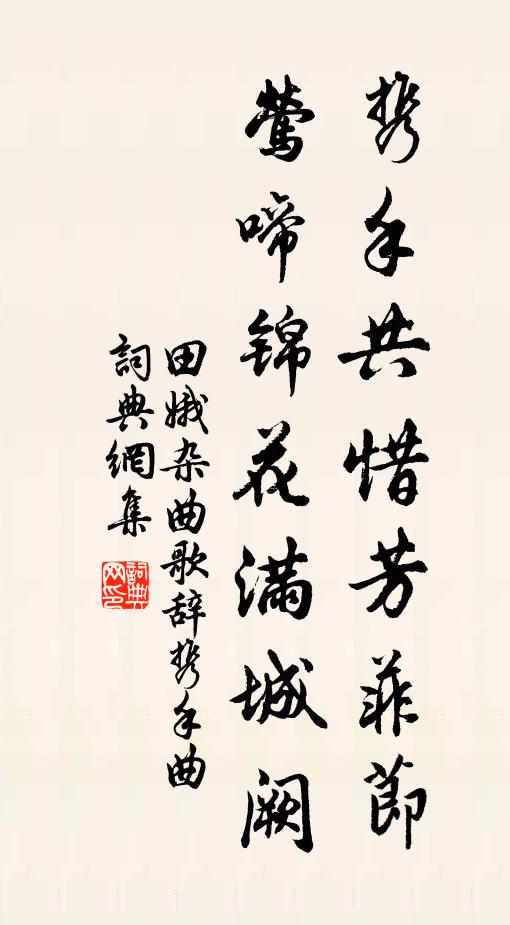 携手共惜芳菲節
鶯啼錦花滿城闕
田娥杂曲歌辞携手曲
詞典網集
詞典网印